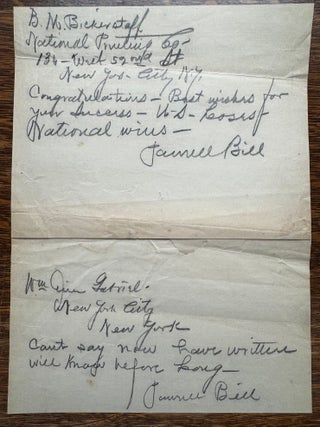 B. M. Bickerstaff
National Printing Co-
134 - West 52nd St
New York City N.Y.
Congratulations - Best wishes for
your success - U-S- Loses
National wins -
Pawnee Bill
Wm Gabriel.
New York City
New York
Cant say now have written
will know before long -
Pawnee Bill